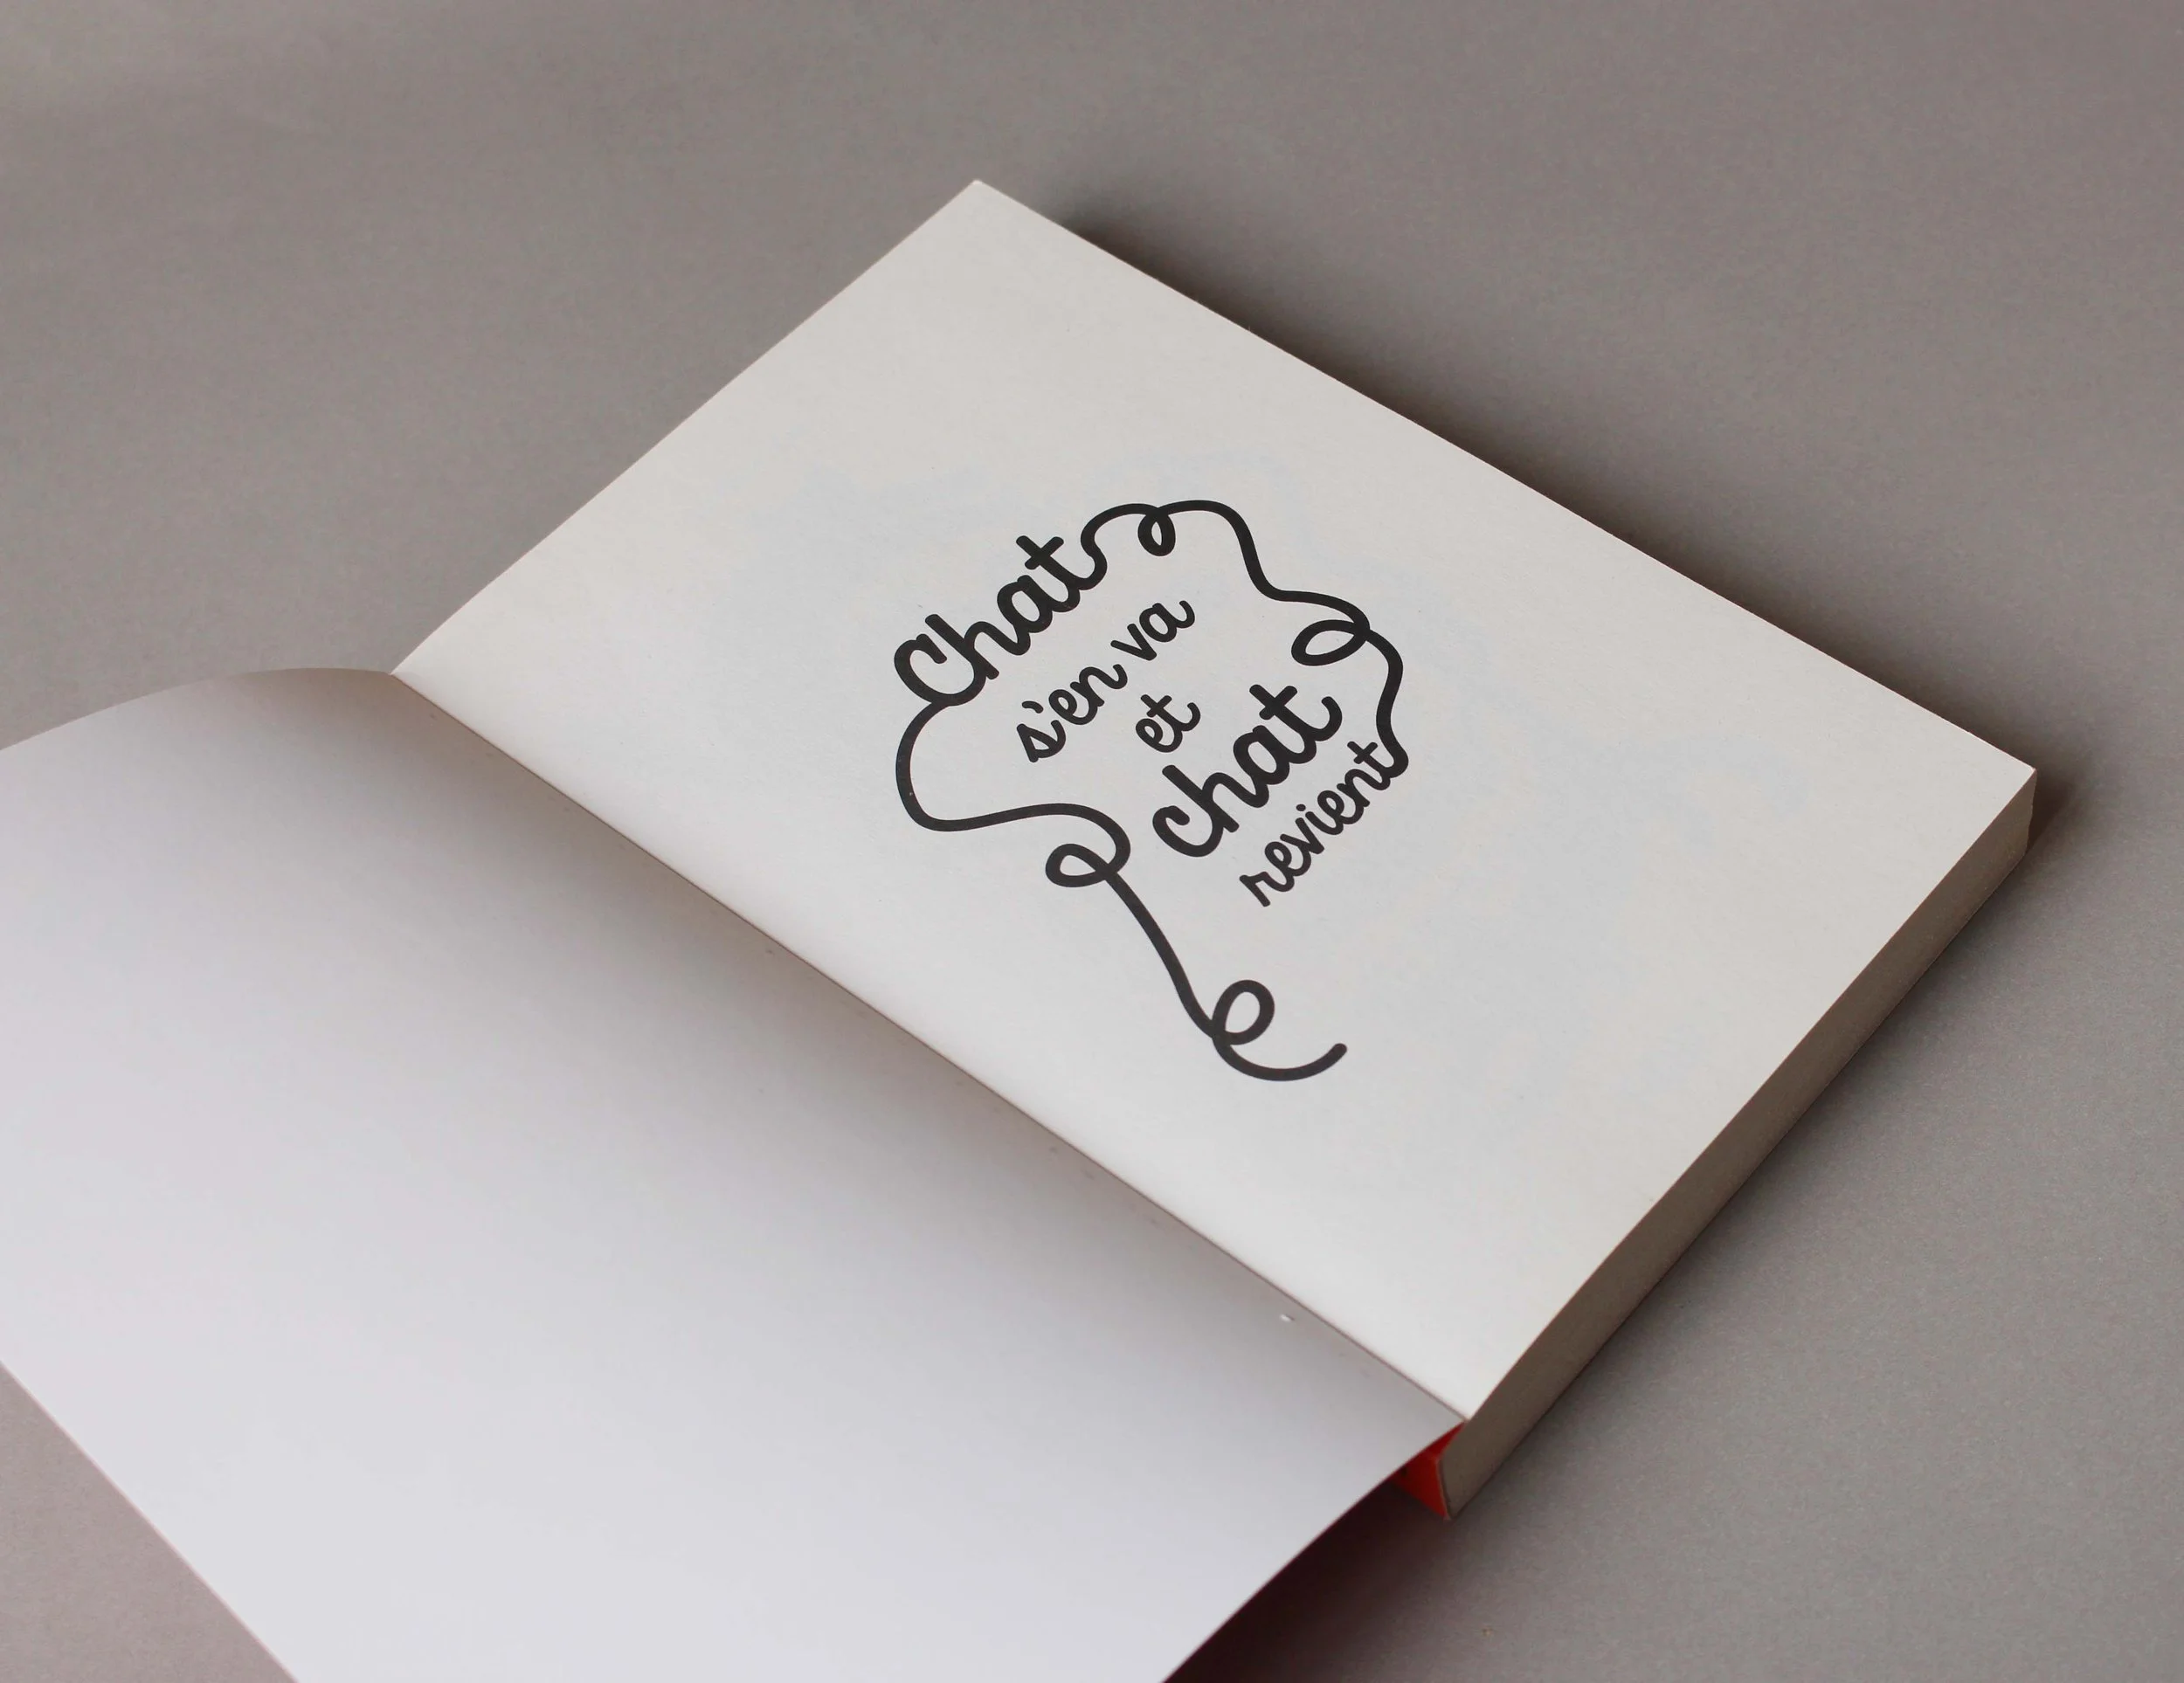 Chat
s'en va
et
chat
revient